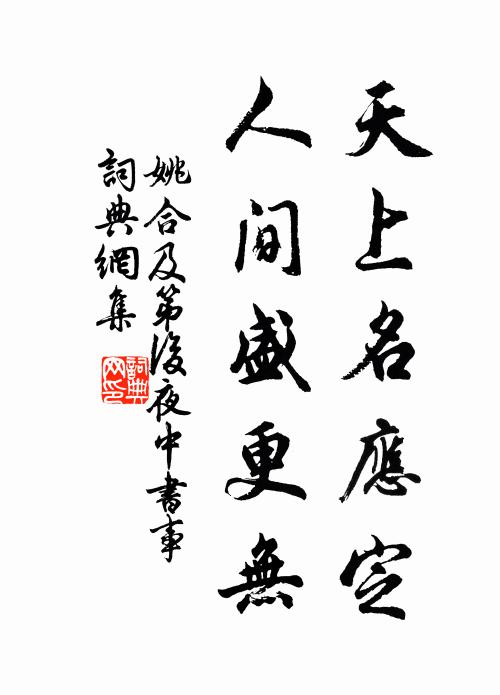 天上名應定
人間盛更無
姚合及第後夜中書事
詞典網集
詞典
网印